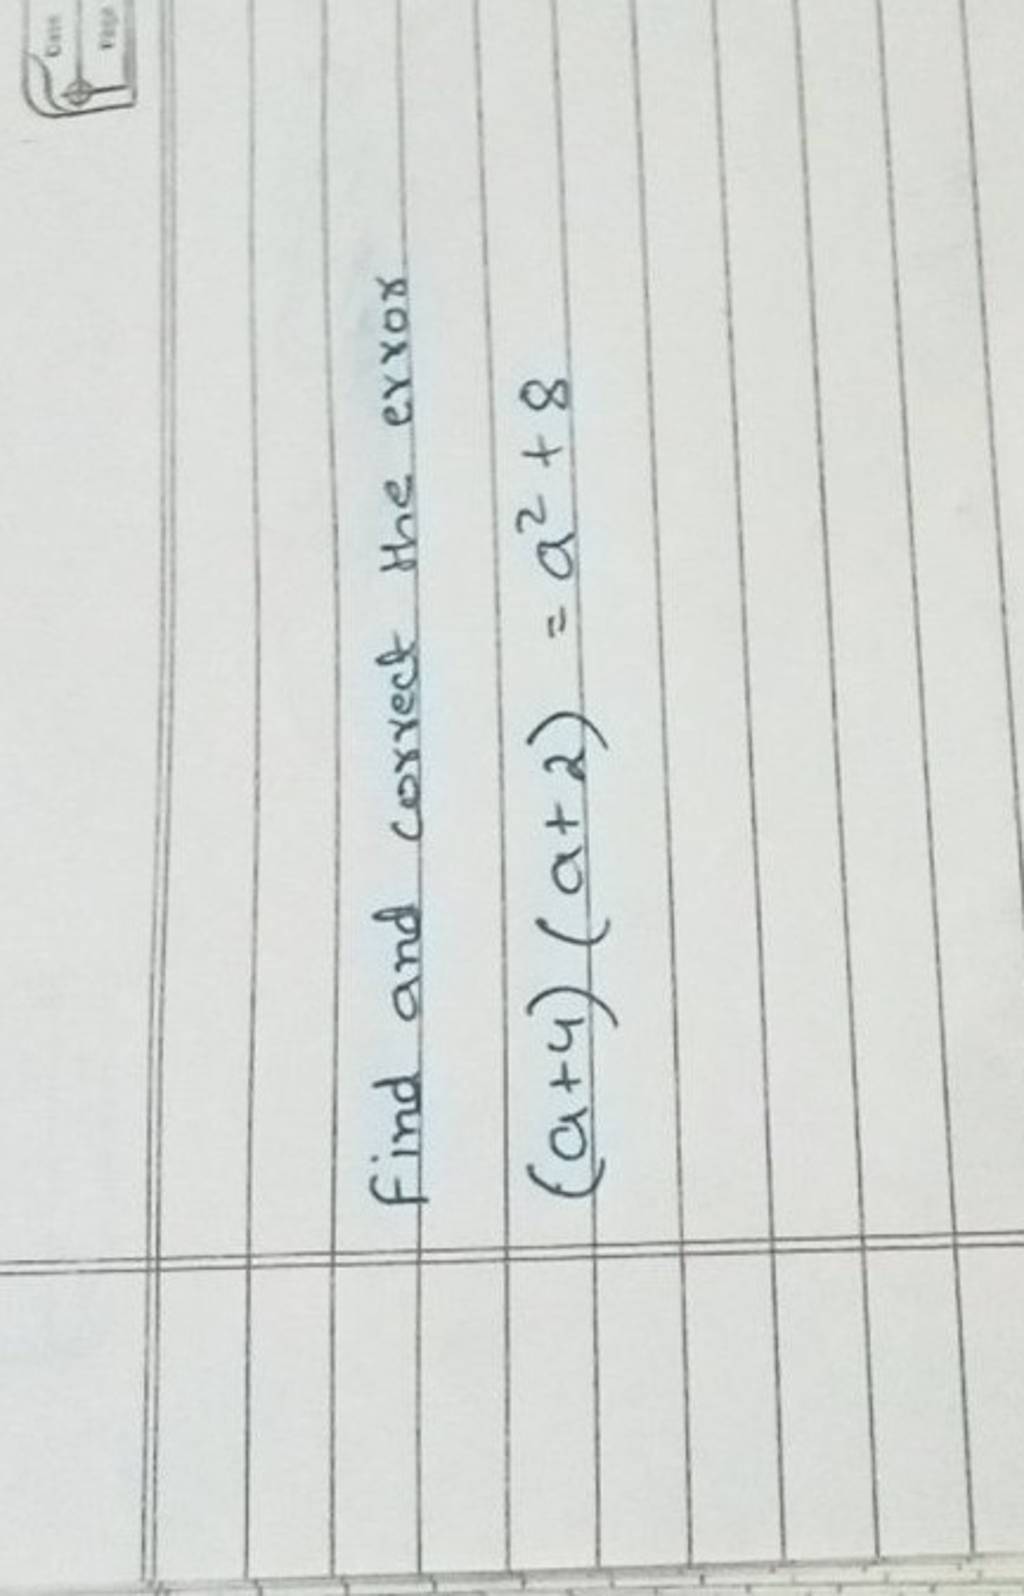 Date
Page
Find and correct the error
(a+4) (a+2) = a² + 8